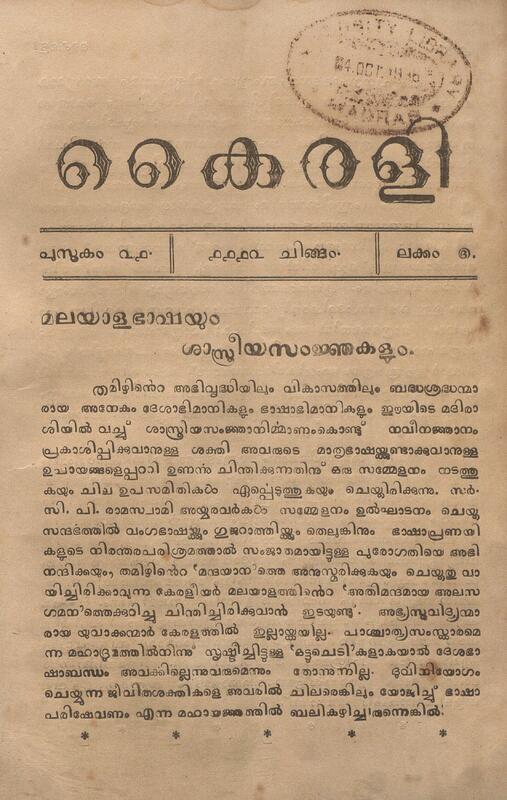 UNIVERSITY LIBRARY
MADRAS
കൈരളി
പുസ്തകം ൨൧. ൧൧൧൨ ചിങ്ങം. ലക്കം ൫.
മലയാളഭാഷയും
ശാസ്ത്രീയസംജ്ഞകളും.
തമിഴിൻെറ അഭിവൃദ്ധിയിലും വികാസത്തിലും ബദ്ധശ്രദ്ധന്മാ
രായ അനേകം ദേശാഭിമാനികളും ഭാഷാഭിമാനികളും ഈയിടെ മദിരാ
ശിയിൽ വച്ച് ശാസ്ത്രീയസംജ്ഞാനിൎമ്മാണംകൊണ്ട് നവീനജ്ഞാനം
പ്രകാശിപ്പിക്കുവാനുള്ള ശക്തി അവരുടെ മാതൃഭാഷയ്ക്കുണ്ടാക്കുവാനുള്ള
ഉപായങ്ങളെപ്പററി ഉണൎന്നു ചിന്തിക്കുന്നതിനു് ഒരു സമ്മേളനം നടത്തു
കയും ചില ഉപസമിതികൾ ഏൎപ്പെടുത്തുകയും ചെയ്തിരിക്കുന്നു. സർ.
സി. പി. രാമസ്വാമി അയ്യരവർകൾ സമ്മേളനം ഉൽഘാടനം ചെയ്ത
സന്ദൎഭത്തിൽ വംഗഭാഷയ്ക്കും ഗുജറാത്തിയ്ക്കും തെലുങ്കിനും ഭാഷാപ്രണയി
കളുടെ നിരന്തരപരിശ്രമത്താൽ സംജാതമായിട്ടുള്ള പുരോഗതിയെ അഭി
നന്ദിക്കയും, തമിഴിൻെറ 'മന്ദയാന'ത്തെ അനുസ്മരിക്കുകയും ചെയ്തതു വാ
യിച്ചിരിക്കാവുന്ന കേരളീയർ മലയാളത്തിൻെറ 'അതിമന്ദമായ അലസ
ഗമന'ത്തെക്കുറിച്ചു ചിന്തിച്ചിരിക്കുവാൻ ഇടയുണ്ടു്. അഭ്യസ്തവിദ്യന്മാ
രായ യുവാക്കന്മാർ കേരളത്തിൽ ഇല്ലായ്കയില്ല. പാശ്ചാത്യസംസ്കാരമെ
ന്ന മഹാദ്രുമത്തിൽനിന്നു് സൃഷ്ടിച്ചിട്ടുള്ള 'ഒട്ടുചെടി'കളാകയാൽ ദേശഭാ
ഷാബന്ധം അവൎക്കില്ലെന്നുവരുമെന്നും തോന്നുന്നില്ല. ദുൎവിനിയോഗം
ചെയ്യുന്ന ജീവിതശക്തികളെ അവരിൽ ചിലരെങ്കിലും യോജിച്ച് ഭാഷാ
പരിഷേവണം എന്ന മഹായജ്ഞത്തിൽ ബലികഴിച്ചിരുന്നെങ്കിൽ!
* * * * *